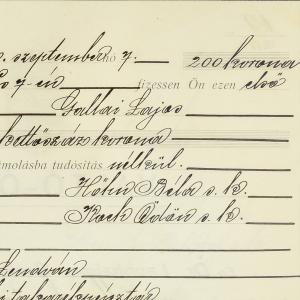 szeptember hó 7. 200 korona
7-én fizessen Ön ezen első
Gallai Lajos
kettőszáz korona
számolásba tudósítás nélkül.
Höhn Béla s. k.
Kock Ödön s. k.
Lendván
takarékpénztár